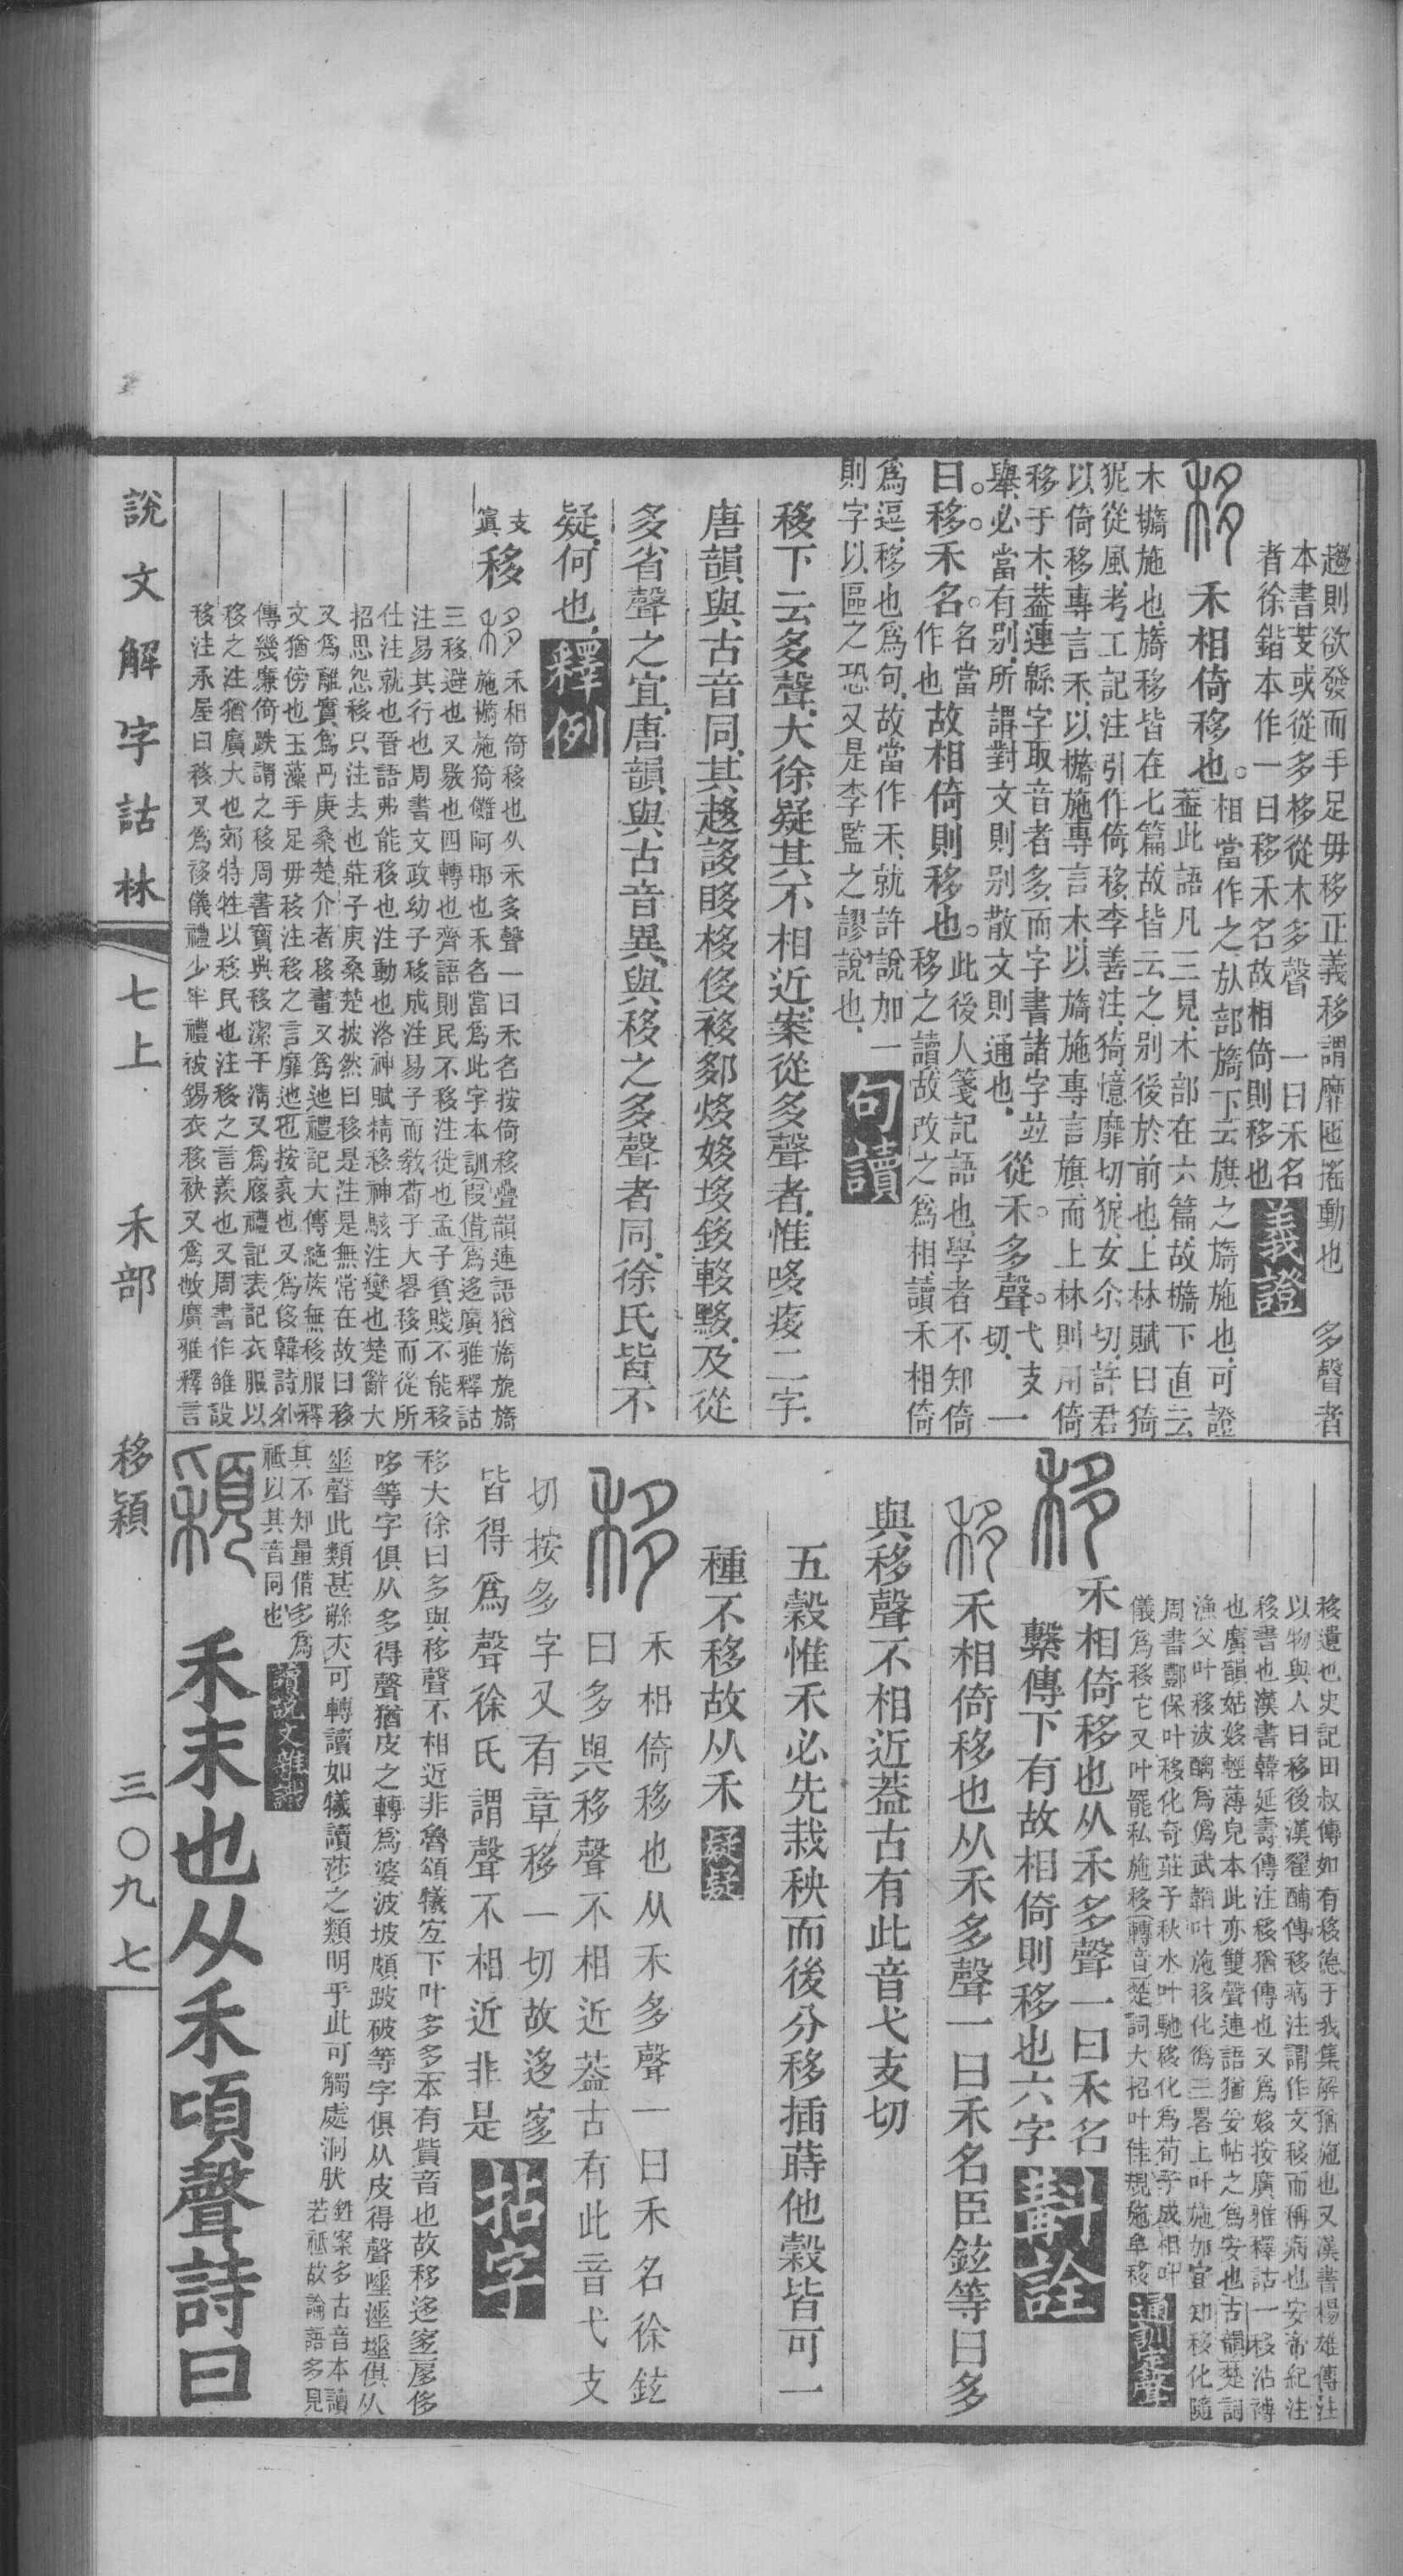 趨則欲發而手足毋移正義移謂靡匜搖動也　多聲者
本書芰或從多栘從木多聲　一曰禾名
者徐鍇本作一曰移禾名故相倚則移也義證
禾相倚移也。相當作之㫃部旖下云旗之旖施也可證
蓋此語凡三見木部在六篇故檹下直云
木檹施也旖移皆在七篇故皆云之别後於前也上林賦曰猗
狔從風考工記注引作倚移李善注猗憶靡切狔女尒切許君
以倚移專言禾以檹施專言木以旖施專言旗而上林則用倚
移于木蓋連緜字取音者多而字書諸字竝
舉必當有别所謂對文則别散文則通也
從禾。多聲。弋支切一
曰。移禾名。名當作也故相倚則移也。此後人箋記語也學者不知倚
移之讀故改之爲相讀禾相倚
爲逗移也爲句故當作禾就許說加一
則字以區之恐又是李監之謬說也句讀
移下云多聲大徐疑其不相近案從多聲者惟哆痑二字
唐韻與古音同其趍誃眵栘侈袳鄒烙姼垑鉹軫黟及從
多省聲之宜唐韻與古音異與移之多聲者同徐氏皆不
疑何也釋例
支
寘
移
禾相倚移也从禾多聲一曰禾名按倚移疊韻連語猶旖旎旖
施檹施猗儺阿那也禾名當爲此字本訓假借爲迻廣雅釋詁
三移避也又敡也四轉也齊語則民不移注徙也孟子貧賤不能移
注易其行也周書文政幼子移成注易子而敎荀子大畧移而從所
仕注就也晉語弗能移也注動也洛神賦精移神駭注變也楚辭大
招思怨移只注去也莊子庚桑楚披然曰移是注是無常在故曰移
又爲離實爲丹庚桑楚介者移畫又爲迆禮記大傳絶族無移服釋
文猶傍也玉藻手足毋移注移之言靡迆也按衺也又爲侈韓詩外
傳幾廉倚跌謂之移周書寶典移潔干淸又爲廖禮記表記衣服以
移之注猶廣大也郊特牲以移民也注移之言羨也又周書作雒設
移注承屋曰移又爲袳儀禮少牢禮被錫衣移袂又爲敡廣雅釋言
移遺也史記田叔傳如有移德于我集解猶施也又漢書楊雄傳注
以物與人曰移後漢翟酺傳移病注謂作文移而稱病也安帝紀注
移書也漢書韓延壽傳注移猶傳也又爲姼按廣雅釋詁一移沾薄
也廣韻姑姼輕薄皃本此亦雙聲連語猶妥帖之爲安也古韻楚詞
漁父叶移波醨爲僞武韜叶施移化僞三畧上叶施加宜知移化隨
周書酆保叶移化奇莊子秋水叶馳移化爲荀子成相叶
儀爲移它又叶罷私施移轉音楚詞大招叶佳規施卑移通訓定聲
禾相倚移也从禾多聲一曰禾名
繫傳下有故相倚則移也六字斠詮
禾相倚移也从禾多聲一曰禾名臣鉉等曰多
與移聲不相近蓋古有此音弋支切
五穀惟禾必先栽秧而後分移插蒔他穀皆可一
種不移故从禾疑疑
禾相倚移也从禾多聲一曰禾名徐鉉
曰多與移聲不相近葢古有此音弋支
切按多字又有章移一切故迻宐
皆得爲聲徐氏謂聲不相近非是拈字
移大徐曰多與移聲不相近非魯頌犧宐下叶多多本有貲音也故移迻宐𢊁侈
哆等字俱从多得聲猶皮之轉爲婆波坡頗跛破等字俱从皮得聲唾涶埵俱从
坐聲此類甚緐大可轉讀如犧讀莎之類明乎此可觸處洞肰
鉎案多古音本讀
若祗故論語多見
其不知量借多爲
祗以其音同也讀說文雜識
穎
禾末也从禾頃聲詩曰
說文解字詁林
七上
禾部
移穎
三〇九七